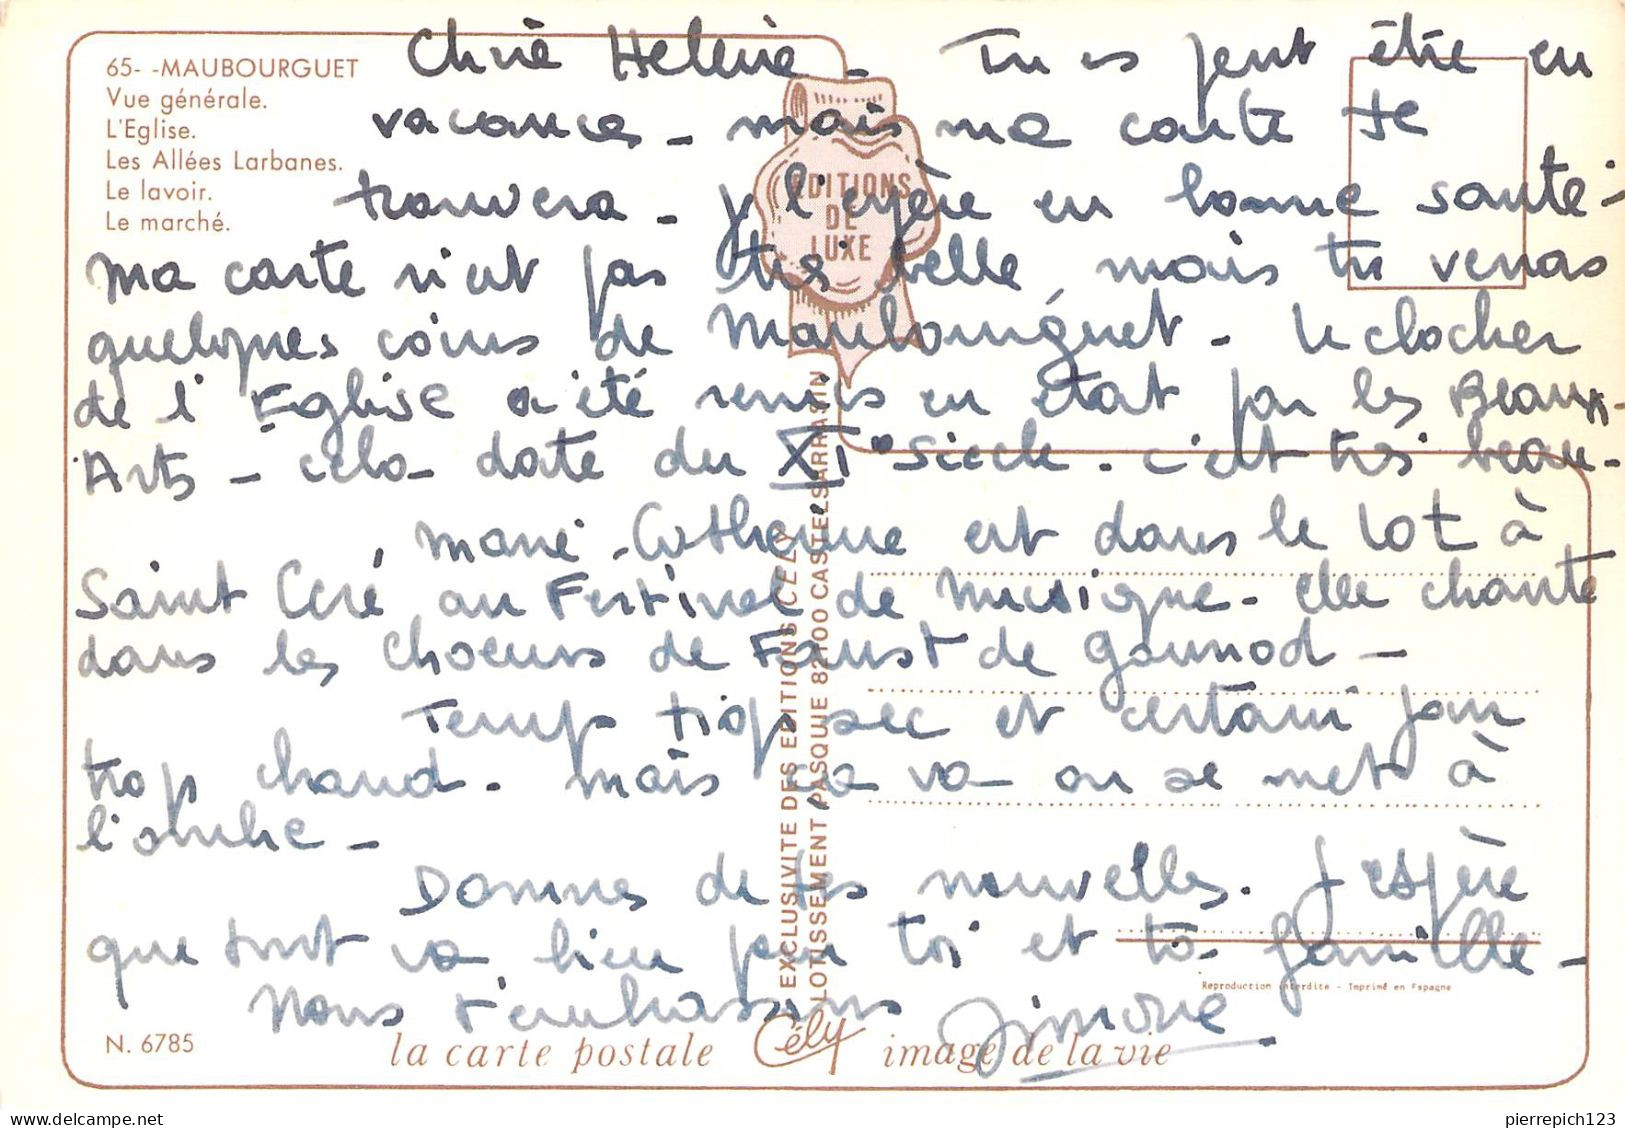 65- -MAUBOURGUET
Vue générale.
L'Eglise.
Les Allées Larbanes.
Le lavoir.
Le marché.
EDITIONS
DE
LUXE
Chère Helène - Tu es peut être en
vacances - mais ma carte te
trouvera - j l'espère en bonne santé -
Ma carte n'est pas très belle, mais tu verras
quelques coins de Maubourguet - Le clocher
de l'Eglise a été remis en état par les Beaux-
Arts - cela date du XI° siècle. c'est très beau -
Marie-Catherine est dans le Lot à
Saint Céré, au Festival de Musique - Elle chante
dans les choeurs de Faust de Gounod -
Temps trop sec et certains jours
trop chaud. mais ça va on se met à
l'ombre -
Donnes de tes nouvelles. J'espère
que tout va bien pour toi et ta famille -
Nous t'embrassons Simone
EXCLUSIVITE DES EDITIONS CELY
LOTISSEMENT PASQUIE 82100 CASTELSARRASIN
Reproduction interdite - Imprimé en Espagne
N. 6785
la carte postale Cély image de la vie
delcampe.net
pierrepich123